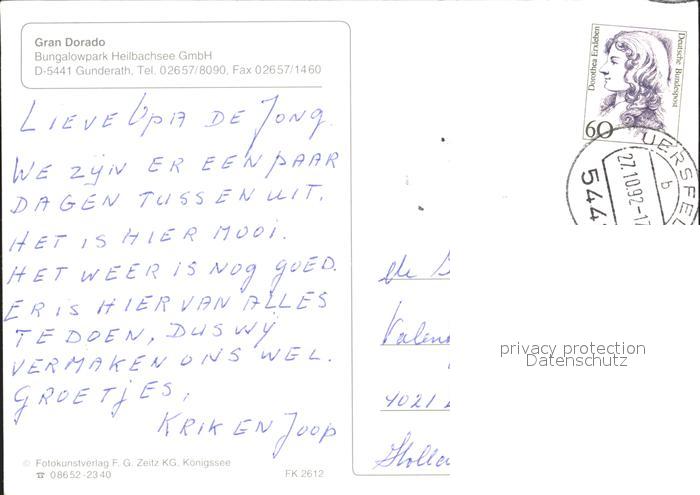 Gran Dorado
Bungalowpark Heilbachsee GmbH
D-5441 Gunderath, Tel. 02657/8090, Fax 02657/1460
LIEVE OPA DE JONG.
WE ZIJN ER EEN PAAR
DAGEN TUSSEN UIT.
HET IS HIER MOOI.
HET WEER IS NOG GOED.
ER IS HIER VAN ALLES
TE DOEN, DUS WIJ
VERMAKEN ONS WEL.
GROETJES,
KRIK EN JOOP
© Fotokunstverlag F. G. Zeitz KG, Königssee
☎ 08652-2340
FK 2612
Dorothea Erxleben
Deutsche Bundespost
60
UERSFEL
27.10.92-17
b
544
4021
privacy protection
Datenschutz